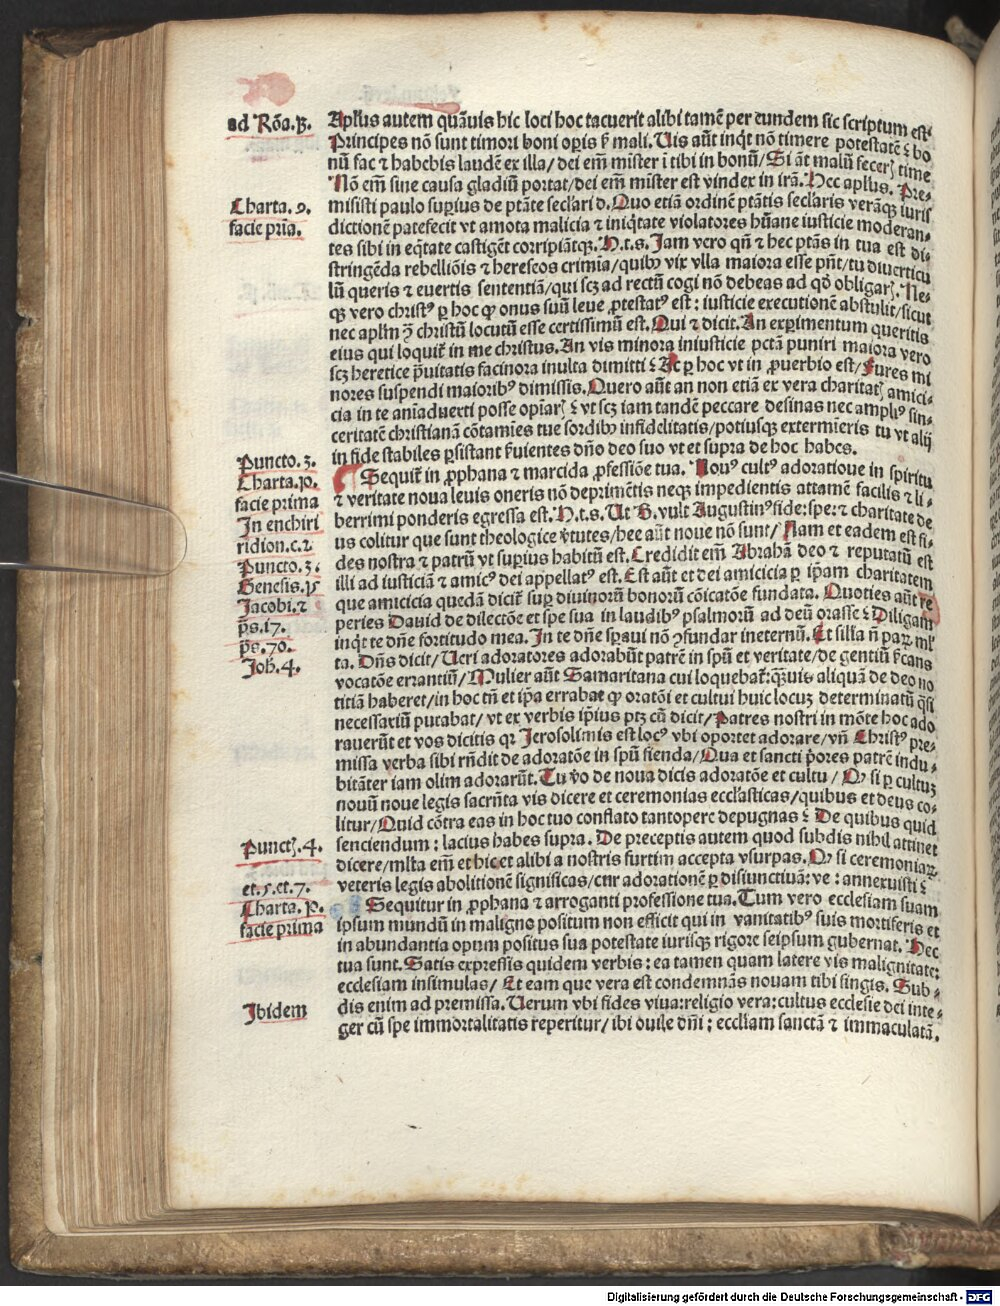 ad Rōa.13.
Charta.9.
facie pria.
Puncto.3.
Charta.10.
facie prima
In enchiri
ridion.c.2
Puncto.3.
Genesis.15
Jacobi.2
ps̄.17.
ps̄.70.
Joh̄.4.
Punctꝭ.4.
et.5.et.7.
Charta.10.
facie prima
Ibidem
Apl'us autem quāuis hic loci hoc tacuerit alibi tamē per eundem sic scriptum est
Principes nō sunt timori boni opis ẜ mali. Uis aūt inqt nō timere potestatē ⁊ bo
nū fac ⁊ habebis laudē ex illa/dei em̄ mister ē tibi in bonū/Si āt malū fecerꝭ time
Nō em̄ sine causa gladiū portat/dei em̄ mīster est vindex in irā. Hec aplus. Pre⸗
misisti paulo supius de ptāte seclari d. Quo etiā ordinē ptātis seclaris verāqꝫ iuris
dictionē patefecit vt amota malicia ⁊ iniqtate violatores hūane iusticie moderan⸗
tes sibi in eqtate castigēt corripiātqꝫ. H.t.s. Jam vero qn̄ ⁊ hec ptās in tua est di⸗
stringēda rebelliōis ⁊ hereseos crimīa/quibꝰ vix vlla maiora esse pn̄t/tu diuerticu
lū queris ⁊ euertis sententiā/qui scꝫ ad rectū cogi nō debeas ad qd̄ obligarꝭ. Ne⸗
qꝫ vero christꝰ ꝑ hoc ꝙ onus suū leue ꝓtestatꝰ est : iusticie executionē abstulit/sicut
nec aplm̄ ꝑ christū locutū esse certissimū est. Qui ⁊ dicit. An expimentum queritis
eius qui loquit' in me christus. An vis minora iniusticie pctā puniri maiora vero
scꝫ heretice prauitatis facinora inulta dimitti ⁊ Ac ꝑ hoc vt in ꝓuerbio est/Fures mi
nores suspendi maioribꝰ dimissis. Quero aūt an non etiā ex vera charitatꝭ amici⸗
cia in te aniaduerti posse opiarꝭ ⁊ vt scꝫ iam tandē peccare desinas nec ampliꝰ sin⸗
ceritatē christianā cōtamīes tue sordibꝰ infidelitatis/potiusqꝫ extermīeris tu vt alij
in fide stabiles ꝑsistant ẜuientes dn̄o deo suo vt et supra de hoc habes.
Sequit' in ꝓphana ⁊ marcida ꝓfessiōe tua. Nouꝰ cultꝰ adoratioue in spiritu
⁊ veritate noua leuis oneris nō deprimētis neqꝫ impedientis attamē facilis ⁊ li⸗
berrimi ponderis egressa est. H.t.s. Ut B. vult Augustinꝰ fide:spe:⁊ charitate de
us colitur que sunt theologice v̄tutes/hec aūt noue nō sunt/Nam et eadem est fi⸗
des nostra ⁊ patrū vt supius habitū est. Credidit em̄ Abrahā deo ⁊ reputatū est
illi ad iusticiā ⁊ amicꝰ dei appellatꝰ est. Est aūt et dei amicicia ꝑ ip̄am charitatem
que amicicia quedā dicit' sup diuinorū bonorū cōicatōe fundata. Quoties aūt re
peries Dauid de dilectōe et spe sua in laudibꝰ psalmorū ad deū orasse ⁊ Diligam
inqt te dn̄e fortitudo mea. In te dn̄e spaui nō ꝯfundar ineternū. Et sill'a n̄ paꝝ ml'
ta. Dn̄s dicit/Ueri adoratores adorabūt patrē in spū et veritate/de gentiū ẜcans
vocatōe errantiū/Mulier aūt Samaritana cui loquebat':qꝫuis aliquā de deo no
titiā haberet/in hoc tn̄ et ip̄a errabat ꝙ oratōi et cultui huic locuꝫ determinatū qsi
necessariū putabat/vt ex verbis ip̄ius ptꝫ cū dicit/Patres nostri in mōte hoc ado
rauerūt et vos dicitis qꝛ Jerosolimis est locꝰ vbi oportet adorare/vn̄ Christꝰ pre⸗
missa verba sibi rn̄dit de adoratōe in spū fienda/Qua et sancti p̄ores patrē indu⸗
bitāter iam olim adorarūt. Tu v̄o de noua dicis adoratōe et cultu/Qꝫ si ꝑ cultuꝫ
nouū noue legis sacrn̄ta vis dicere et ceremonias eccl'asticas/quibus et deus co⸗
litur/Quid cōtra eas in hoc tuo conflato tantopere depugnas ⁊ De quibus quid
senciendum : lacius habes supra. De preceptis autem quod subdis nihil attinet
dicere/ml'ta em̄ et hic et alibi a nostris furtim accepta vsurpas. Qꝫ si ceremoniaꝝ
veteris legis abolitionē significas/cur adorationē ꝑ disiunctiuā:ve : annexuisti ⁊
Sequitur in ꝓphana ⁊ arroganti professione tua. Tum vero ecclesiam suam
ipsum mundū in maligno positum non efficit qui in vanitatibꝰ suis mortiferis et
in abundantia opum positus sua potestate iurisqꝫ rigore seipsum gubernat. Hec
tua sunt. Satis expressis quidem verbis : ea tamen quam latere vis malignitate:
ecclesiam insimulas/Et eam que vera est condemnās nouam tibi singis. Sub⸗
dis enim ad premissa. Uerum vbi fides viua:religio vera:cultus ecclesie dei inte⸗
ger cū spe immortalitatis reperitur/ibi ouile dn̄i ; eccl'iam sanctā ⁊ immaculatā.
Digitalisierung gefördert durch die Deutsche Forschungsgemeinschaft - DFG